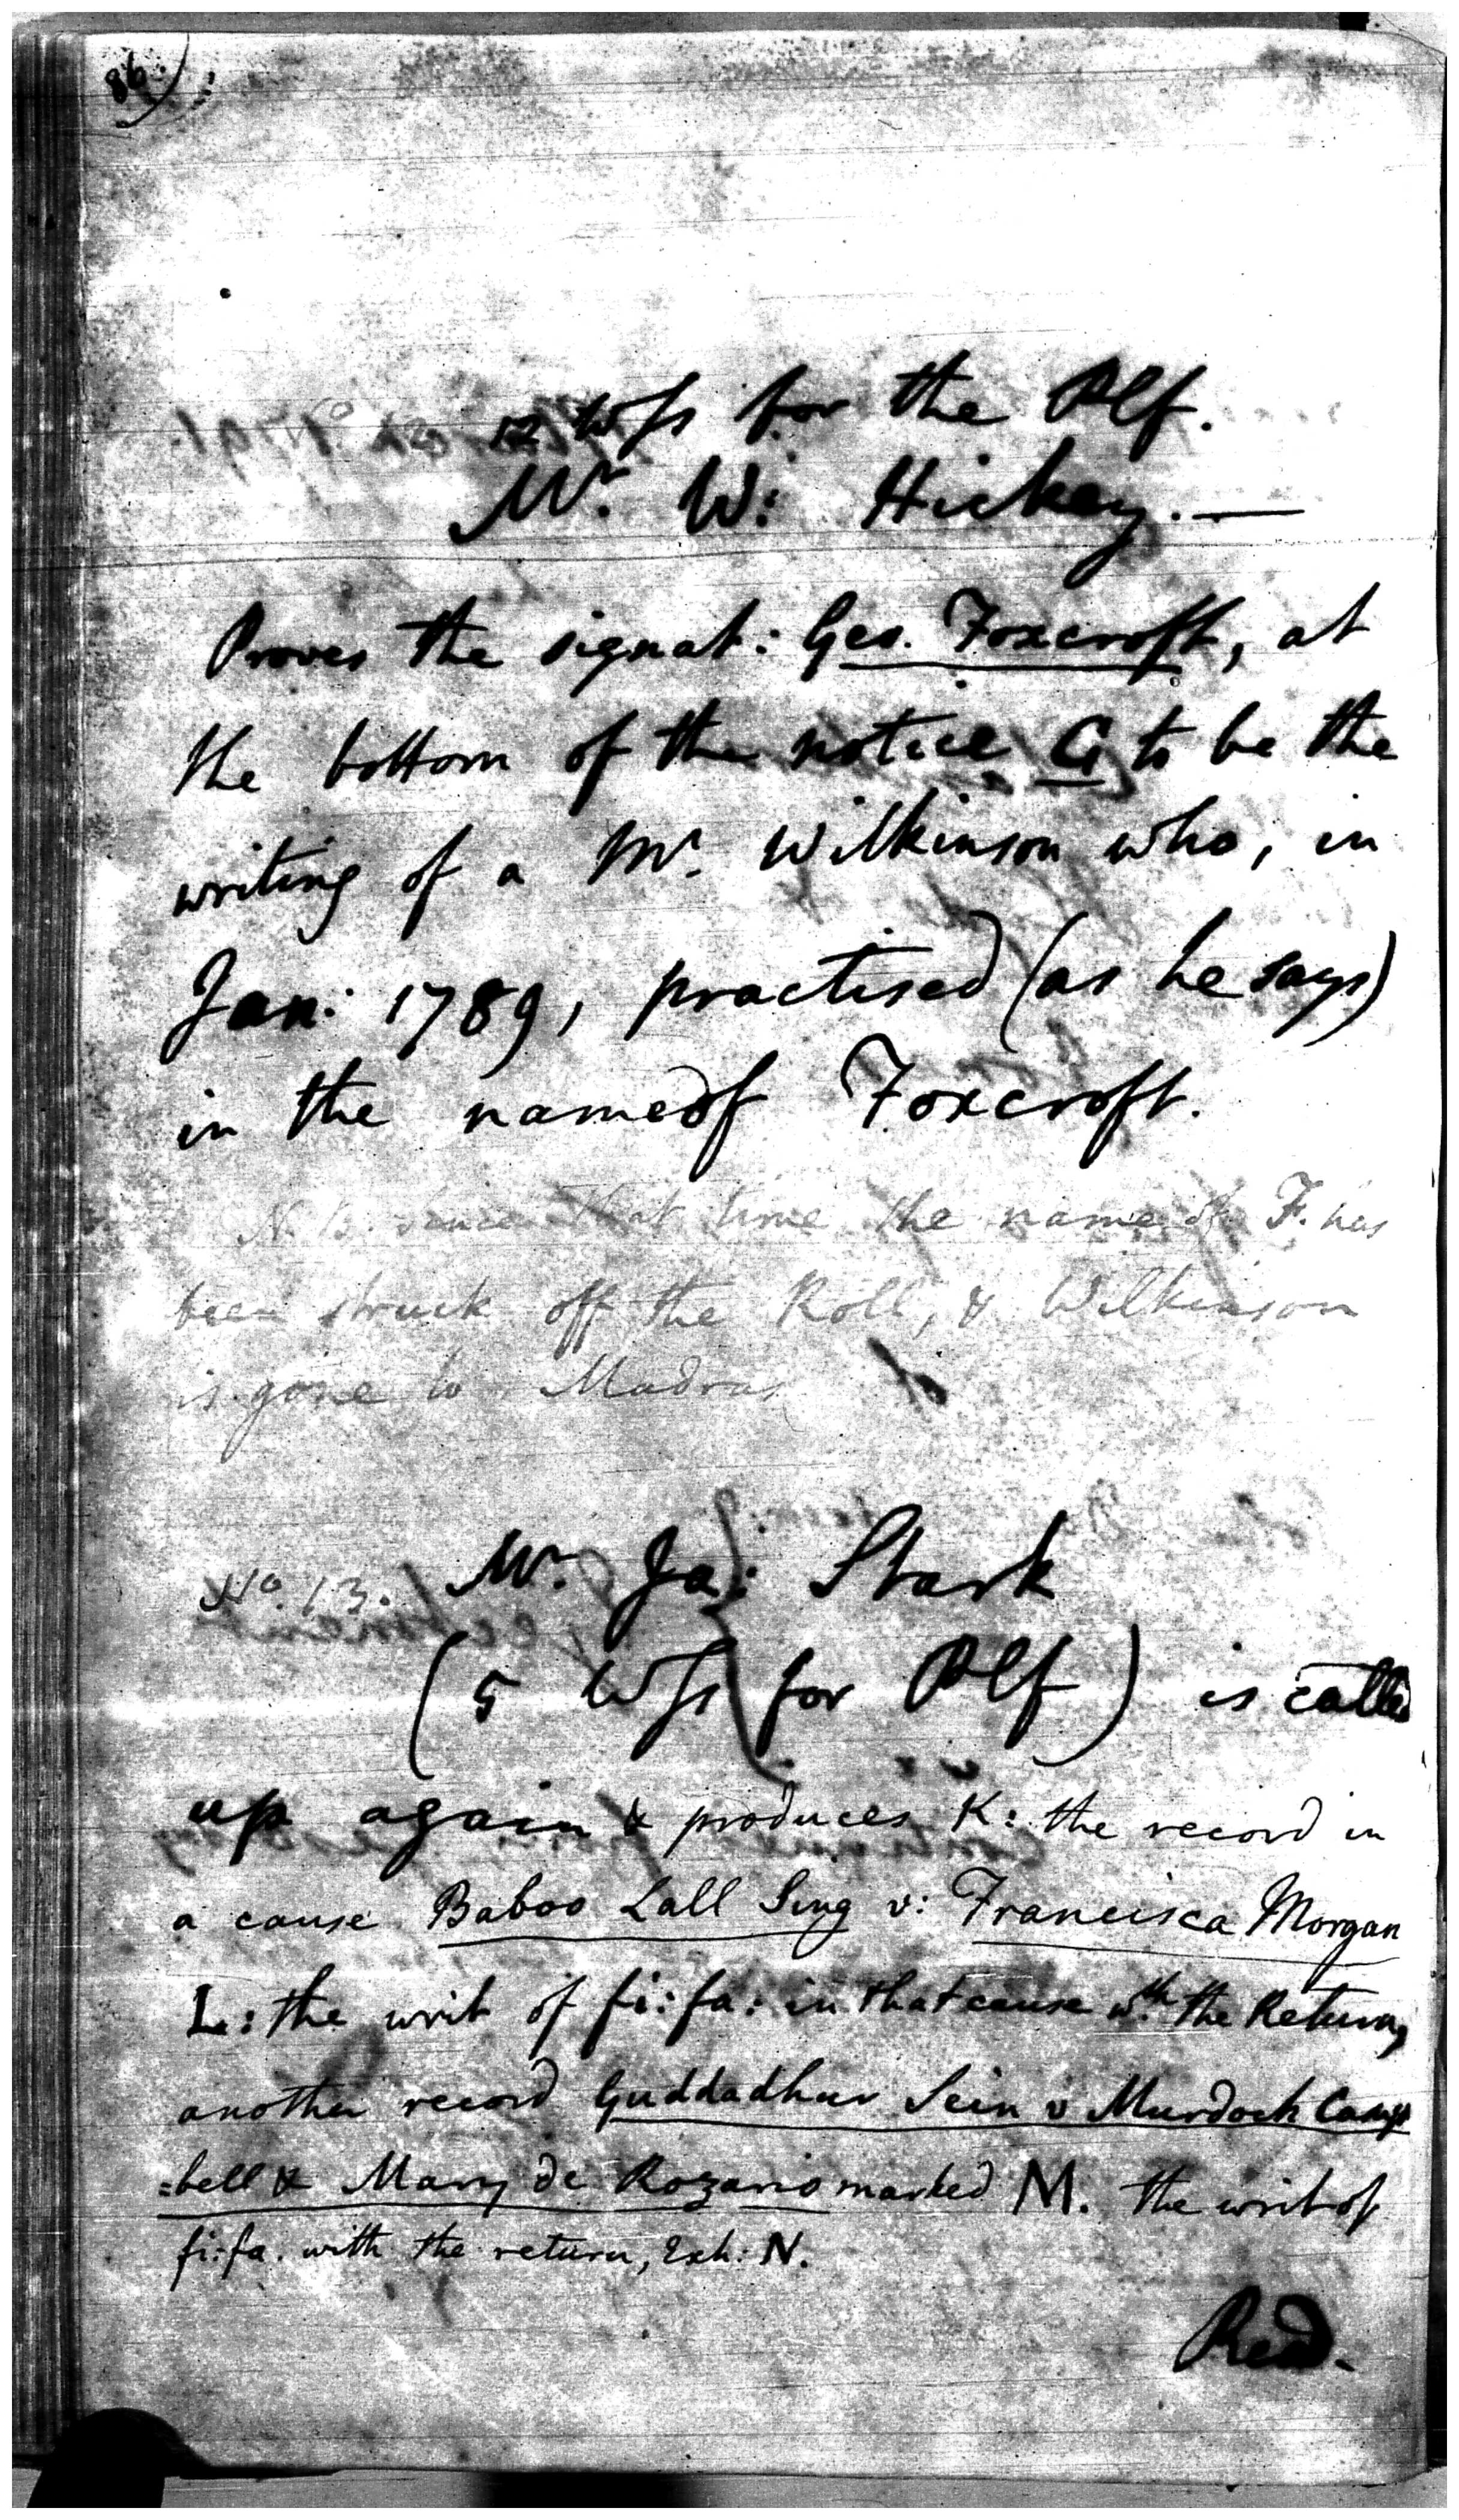 86
12 Wſs for the Plf.
Mr. W: Hickey. —
Proves the signat: Geo. Foxcroft, at
the bottom of the notice G to be the
writing of a Mr. Wilkinson who, in
Jan: 1789, practised (as he says)
in the name of Foxcroft.
N.B. since that time the name of F. has
been struck off the Roll, & Wilkinson
is gone to Madras
No. 13. Mr. Ja: Stark
(5 Wſs for Plf) is called
up again & produces K: the record in
a cause Baboo Lall Sing v: Francisca Morgan
L: the writ of fi: fa: in that cause wth. the Return,
another record Guddadhur Sein v Murdoch Camp
=bell & Mary de Rozario marked M. the writ of
fi: fa. with the return, Exh: N.
Read.